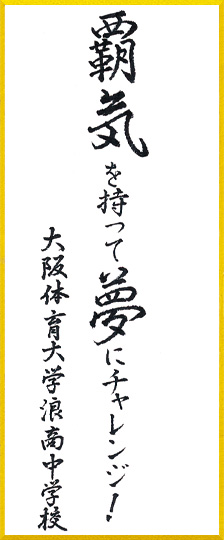 覇気を持って夢にチャレンジ!
大阪体育大学浪商中学校